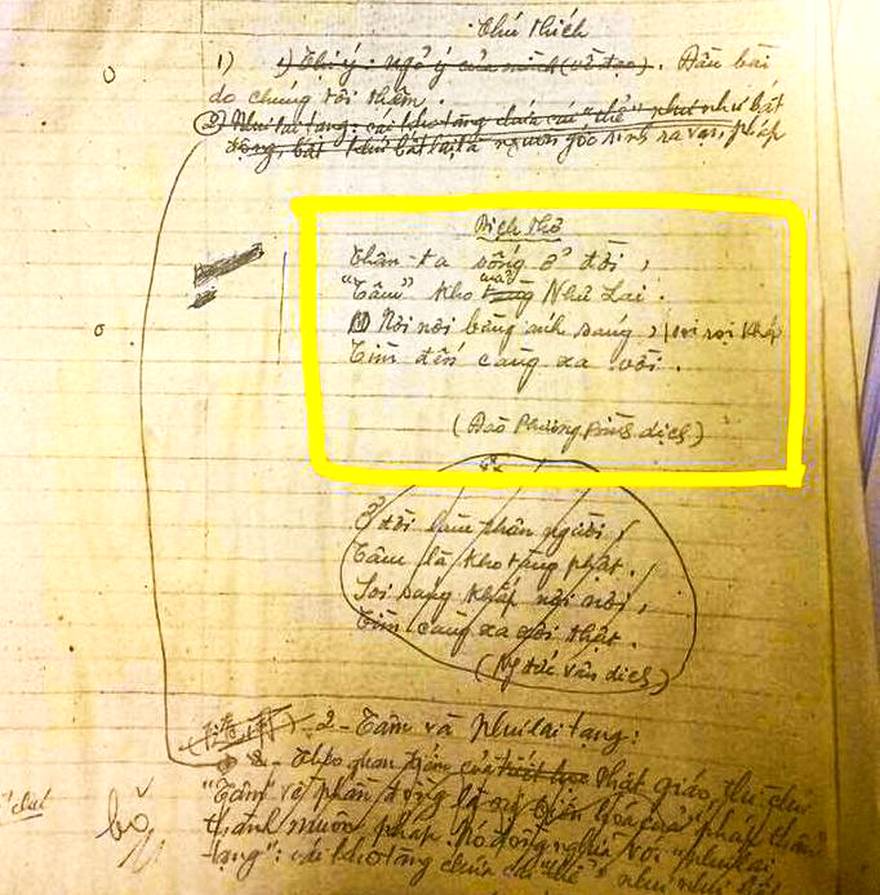 Chú thích
1) 1) Thị ý: ngỏ ý của mình (về đạo). Đầu bài
do chúng tôi thêm.
2) Như lai tạng: cái kho tàng chứa cái "thể" như như bất
động, bất khứ bất lai, là nguồn gốc sinh ra vạn pháp
Dịch thơ
Thân ta sống ở đời,
"Tâm" kho tàng Như Lai.
Nơi nơi bừng ánh sáng, soi rọi khắp
Tìm đến càng xa vời.
(Đào Phương Bình dịch)
Ở đời làm thân người,
Tâm là kho tàng phật.
Soi sáng khắp nơi nơi,
Tìm càng xa gời thật.
(Ng Đức Vân dịch)
2 - Tâm và như lai tạng:
- Theo quan niệm của triết học Phật giáo, thì chữ
"Tâm" về phần động là sự biến hóa của "pháp thân"
thành muôn pháp. Nó đồng nghĩa với "như lai
tạng": cái kho tàng chứa cái "thể" như như bất
chú
bỏ